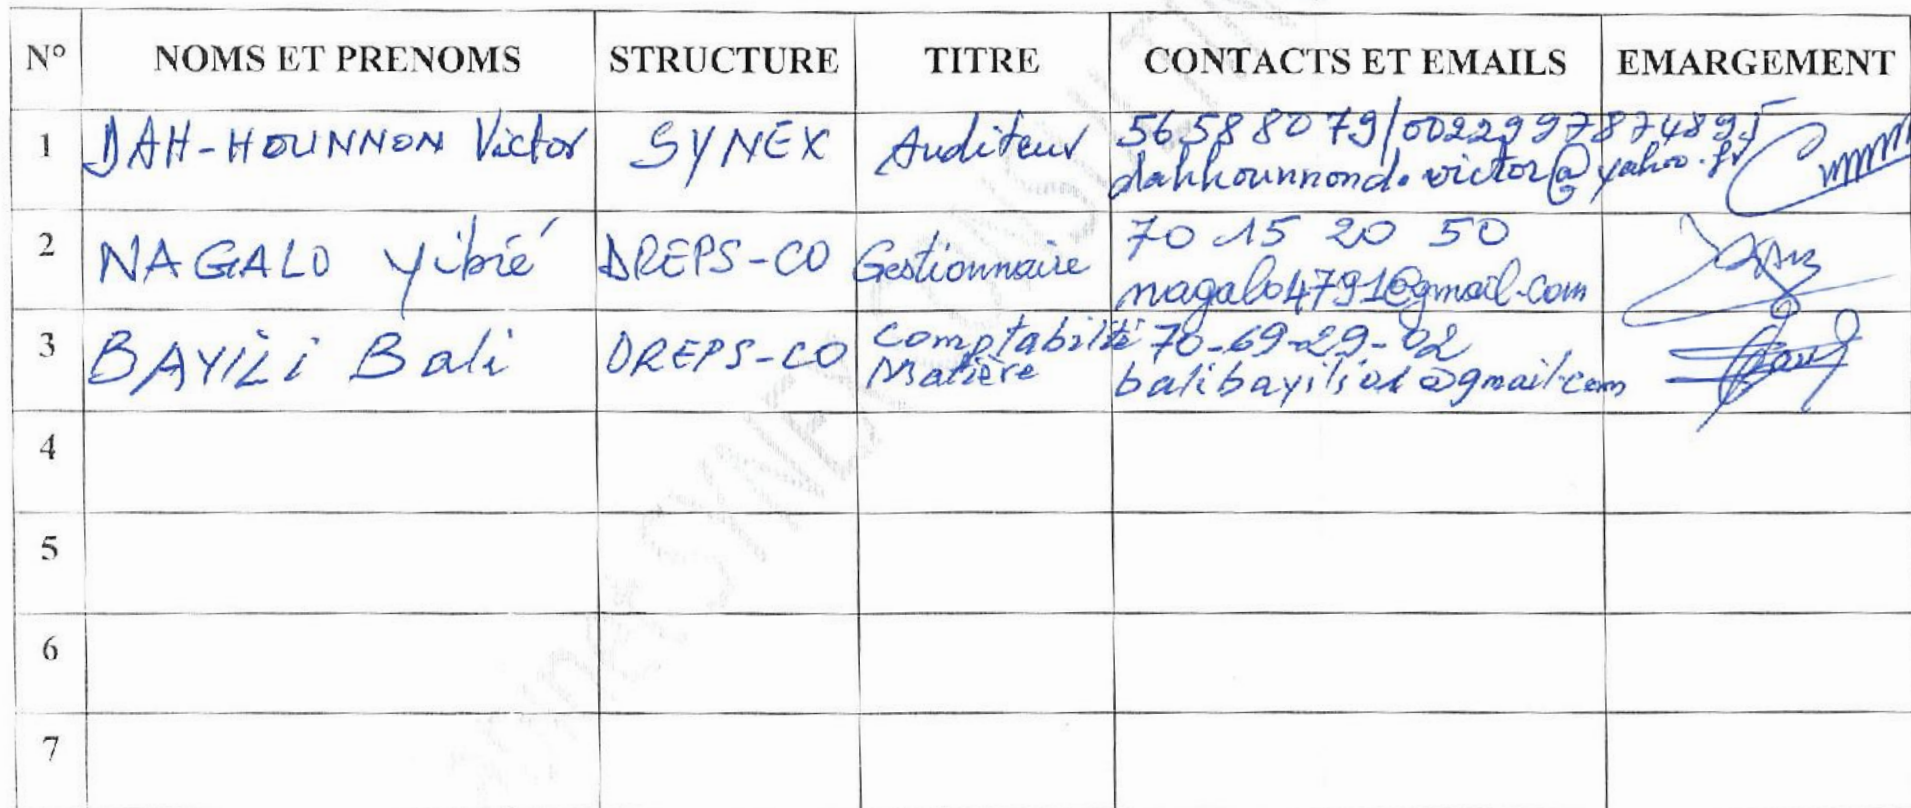 N° NOMS ET PRENOMS STRUCTURE TITRE CONTACTS ET EMAILS EMARGEMENT
1 DAH-HOUNNON Victor SYNEX Auditeur 56588079/0022997874895
dahhounnond.victor@yahoo.fr
2 NAGALO Yibié DREPS-CO Gestionnaire 70 15 20 50
nagalo4791@gmail.com
3 BAYILI Bali DREPS-CO Comptabilité 70-69-29-02
Matière balibayili01@gmail.com
4
5
6
7